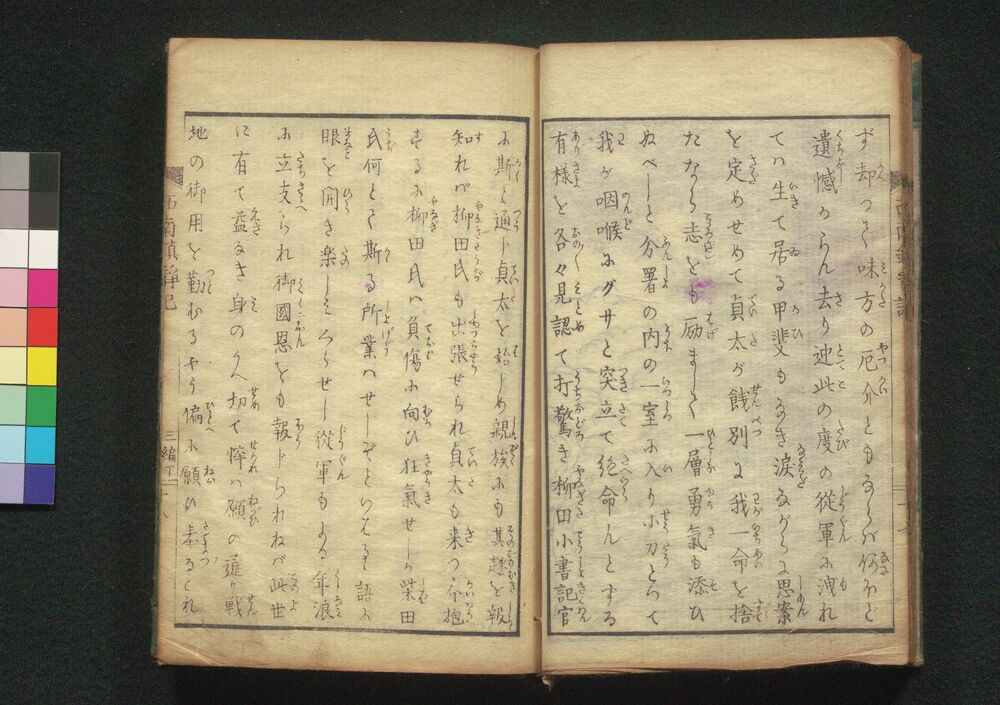 ず却つて味方の厄介ともならバ何ほど
遺憾からん去り迚此の度の從軍に洩れ
てハ生て居る甲斐もなき涙ながらに思案
を定めせめて貞太が餞別に我一命を捨
たなら志をも励まして一層勇氣も添ひ
ぬべしと分署の内の一室に入り小刀とつて
我が咽喉にグサと突立て絶命んとする
有様を各々見認て打驚き柳田小書記官
に斯と通じ貞太を始じめ親族にも其趣を報
知れバ柳田氏も出張せられ貞太も来つ介抱
するに柳田氏ハ負傷に向ひ狂氣せしか柴田
氏何とて斯る所業ハせしぞといはるゝ語に
眼を開き楽しミくらせし從軍もよる年浪
に立支られ御國恩をも報じられねバ此世
に有て益なき身のうへ切て悴ハ願の通り戦
地の御用を勤むるやう偏に願ひ奉るこれ
西南鎮静記
三編下